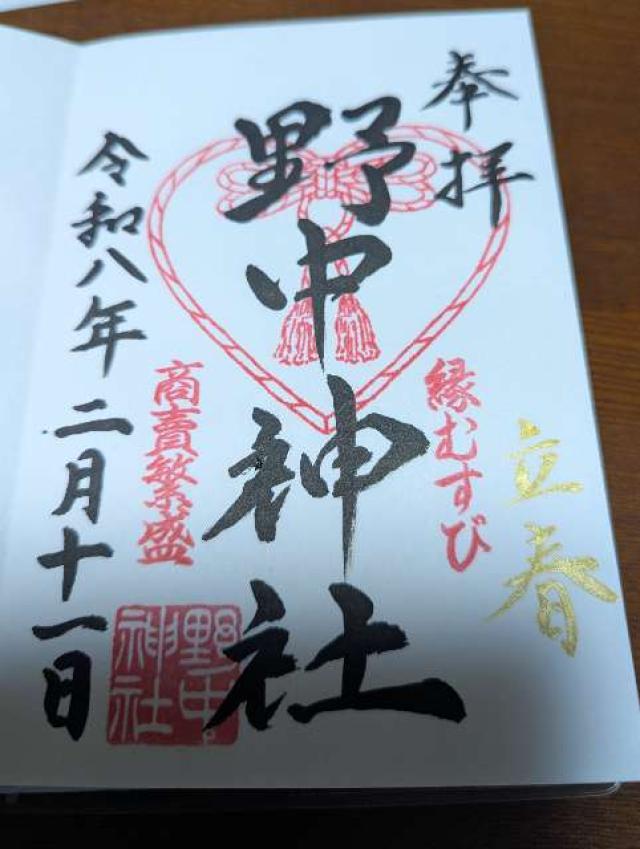 奉拝
立春
縁むすび
野中神社
商賣繁盛
野中神社
令和八年二月十一日